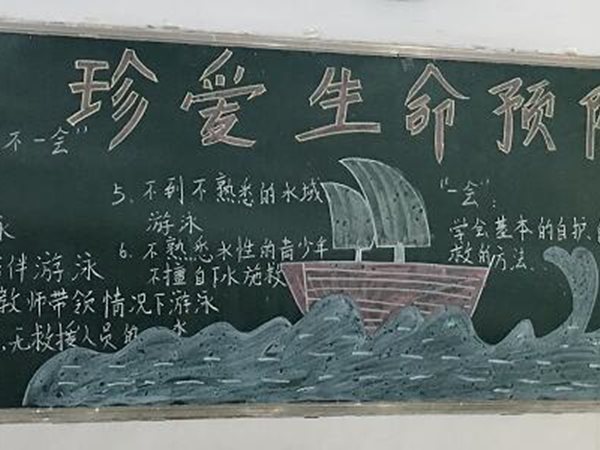 珍爱生命预防
不一会"
泳
伴游泳
教师带领情况下游泳
无救援人员的
水
5、不到不熟悉的水域
游泳
6、不熟悉水性的青少年
不擅自下水施救
"一会"：
学会基本的自护、
救的方法.